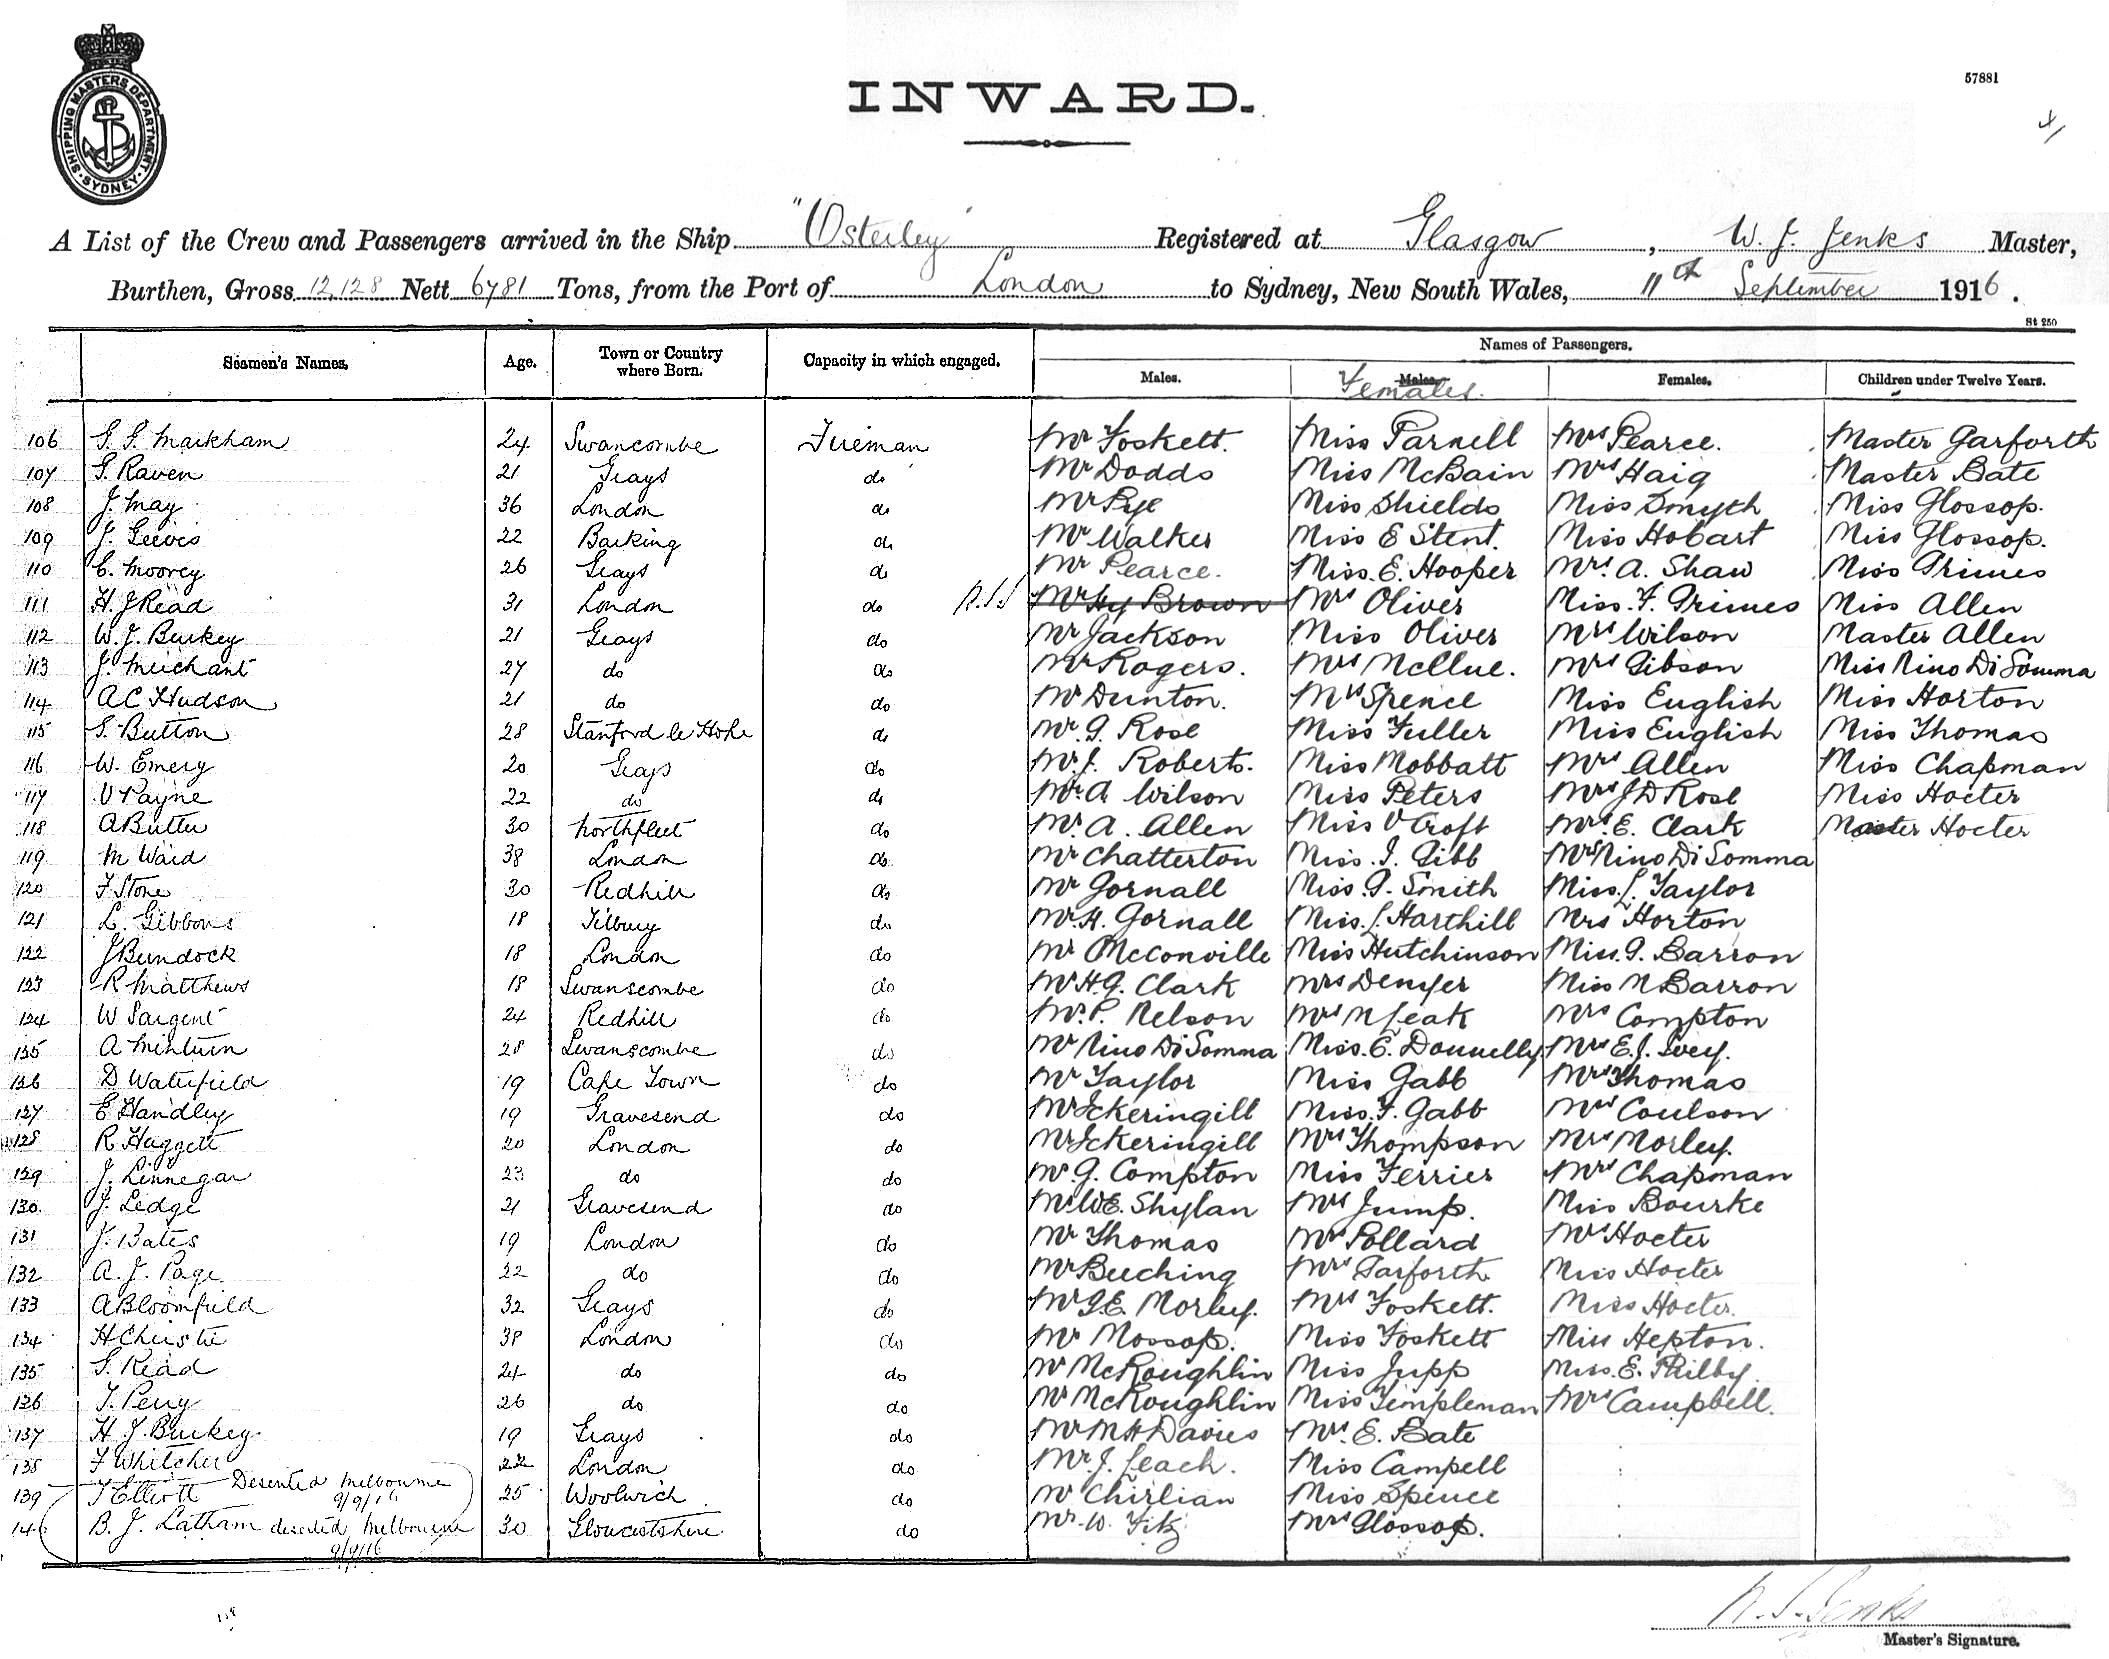 SHIPPING MASTERS DEPARTMENT
SYDNEY
INWARD.
57881
A List of the Crew and Passengers arrived in the Ship "Osterley" Registered at Glasgow, W. J. Jenks Master,
Burthen, Gross 12,128 Nett 6781 Tons, from the Port of London to Sydney, New South Wales, 11th September 1916.
St 250
Seamen's Names. Age. Town or Country where Born. Capacity in which engaged. Names of Passengers.
Males. Males. Females. Females. Children under Twelve Years.
106 G. G. Markham 24 Swancombe Fireman Mr Foskett. Miss Parnell Mrs Pearce. Master Garforth
107 G. Raven 21 Grays do Mr Dodds Miss McBain Mrs Haig Master Bate
108 J. May 36 London do Mr Pye Miss Shields Miss Smyth Miss Glossop.
109 J. 22 Barking do Mr Walker Miss E Stent. Miss Hobart Miss Glossop.
110 C. Moorey 26 Grays do Mr Pearce. Miss. E. Hooper Mrs. A. Shaw Miss Grimes
111 H. J Read 31 London do Mr Hy Brown Mrs Oliver Miss. F. Grimes Miss Allen
112 W. J. Burkey 21 Grays do Mr Jackson Miss Oliver Mrs Wilson Master Allen
113 J. Merchant 27 do do Mr Rogers. Mrs McClue. Mrs Gibson Miss Nino Di Somma
114 A C Hudson 21 do do Mr Dunton. Mrs Spence Miss English Miss Horton
115 S. Button 28 Stanford le Hope do Mr. G. Rose Miss Fuller Miss English Miss Thomas
116 W. Emery 20 Grays do Mr. J. Roberts. Miss Mobbatt Mrs Allen Miss Chapman
117 V Payne 22 do do Mr. A. Wilson Miss Peters Mrs J D Rose Miss Hocter
118 A Butler 30 Northfleet do Mr. A. Allen Miss V Croft Mrs. E. Clark Master Hocter
119 M Ward 38 London do Mr Chatterton Miss. I. Gibb Mrs Nino Di Somma
120 F Stone 30 Redhill do Mr Gornall Miss. G. Smith Miss. L. Taylor
121 L. Gibbons 18 Tilbury do Mr. H. Gornall Miss. L. Harthill Mrs Horton
122 J Bundock 18 London do Mr McConville Miss Hutchinson Miss. G. Barron
123 R Matthews 18 Swanscombe do Mr H. G. Clark Mrs Denyer Miss N Barron
124 W Sargent 24 Redhill do Mr. P. Nelson Mrs N Leak Mrs Compton
125 A Minturn 28 Swanscombe do Mr Nino Di Somma Miss. C. Donnelly Mrs E. J. Ivey.
126 D Waterfield 19 Cape Town do Mr Taylor Miss Gabb Mrs Thomas
127 E Handley 19 Gravesend do Mr Ickeringill Miss. F. Gabb Mrs Coulson
128 R Huggett 20 London do Mr Ickeringill Mrs Thompson Mrs Morley.
129 J. Linnegar 23 do do Mr. G. Compton Miss Ferrier Mrs Chapman
130 J. Ledge 21 Gravesend do Mr W. E. Shylan Mrs Jump. Miss Bourke
131 J. Bates 19 London do Mr Thomas Mrs Pollard Mrs Hocter
132 A. J. Page 22 do do Mr Beeching Mrs Garforth Miss Hocter
133 A Bloomfield 32 Grays do Mr G. E. Morley. Mrs Foskett. Miss Hocter.
134 H Christie 38 London do Mr Mossop. Miss Foskett Miss Hepton.
135 G. Read 24 do do Mr McRoughlin Miss Jupp Miss. E. Philby.
136 T. Perry 26 do do Mr McRoughlin Miss Templeman Mrs Campbell.
137 H J. Burkey 19 Grays do Mr M H Davies Mrs. E. Bate
138 F Whitcher 22 London do Mr. J. Leach. Miss Campell
139 T Elliott Deserted Melbourne 9/9/16 25 Woolwich do Mr Chirlian Miss Spence
140 B. J. Latham deserted Melbourne 9/9/16 30 Gloucestshire do Mr. W. Fitz Mrs Glossop.
Master's Signature.